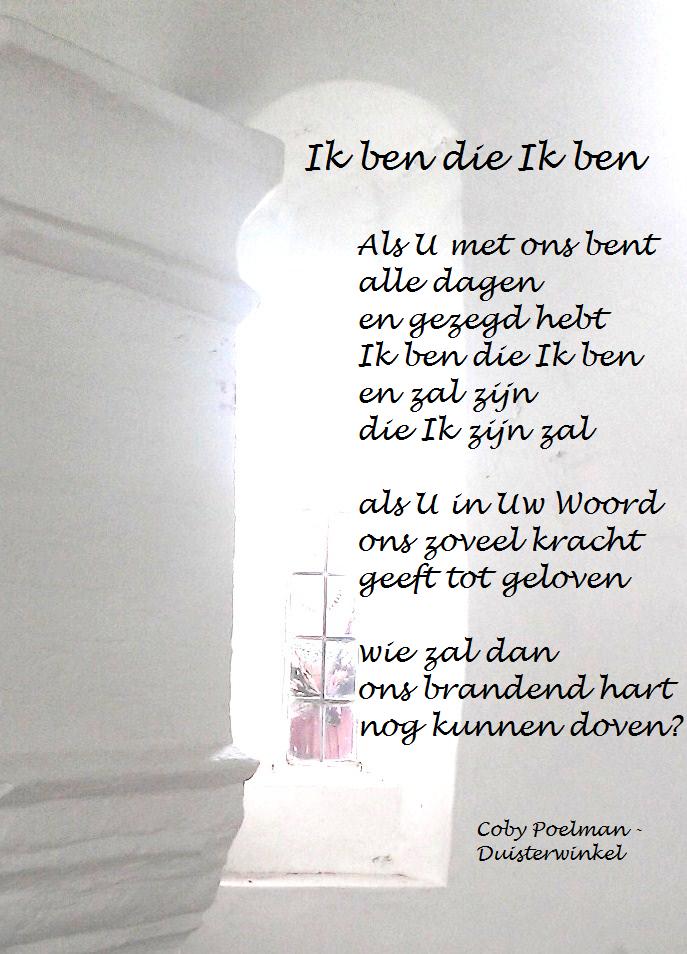 Ik ben die Ik ben
Als U met ons bent
alle dagen
en gezegd hebt
Ik ben die Ik ben
en zal zijn
die Ik zijn zal
als U in Uw Woord
ons zoveel kracht
geeft tot geloven
wie zal dan
ons brandend hart
nog kunnen doven?
Coby Poelman -
Duisterwinkel